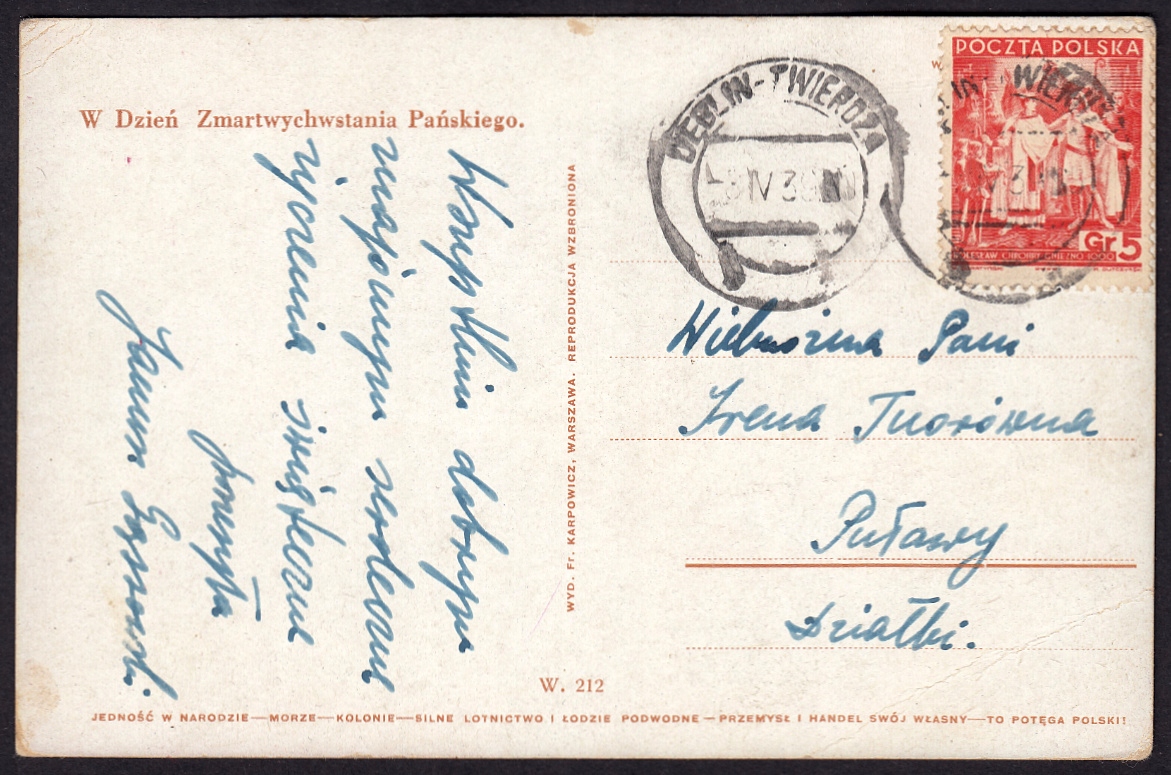 W Dzień Zmartwychwstania Pańskiego.
Wszystkim dobrym
znajomym serdeczne
życzenia świąteczne
przesyła
WYD. Fr. KARPOWICZ, WARSZAWA. REPRODUKCJA WZBRONIONA
DĘBLIN-TWIERDZA
IV 39
POCZTA POLSKA
Gr 5
BOLESŁAW CHROBRY GNIEZNO 1000
Wielmożna Pani
Irena
Puławy
Działki.
W. 212
JEDNOŚĆ W NARODZIE—MORZE—KOLONIE—SILNE LOTNICTWO I ŁODZIE PODWODNE—PRZEMYSŁ I HANDEL SWÓJ WŁASNY—TO POTĘGA POLSKI!